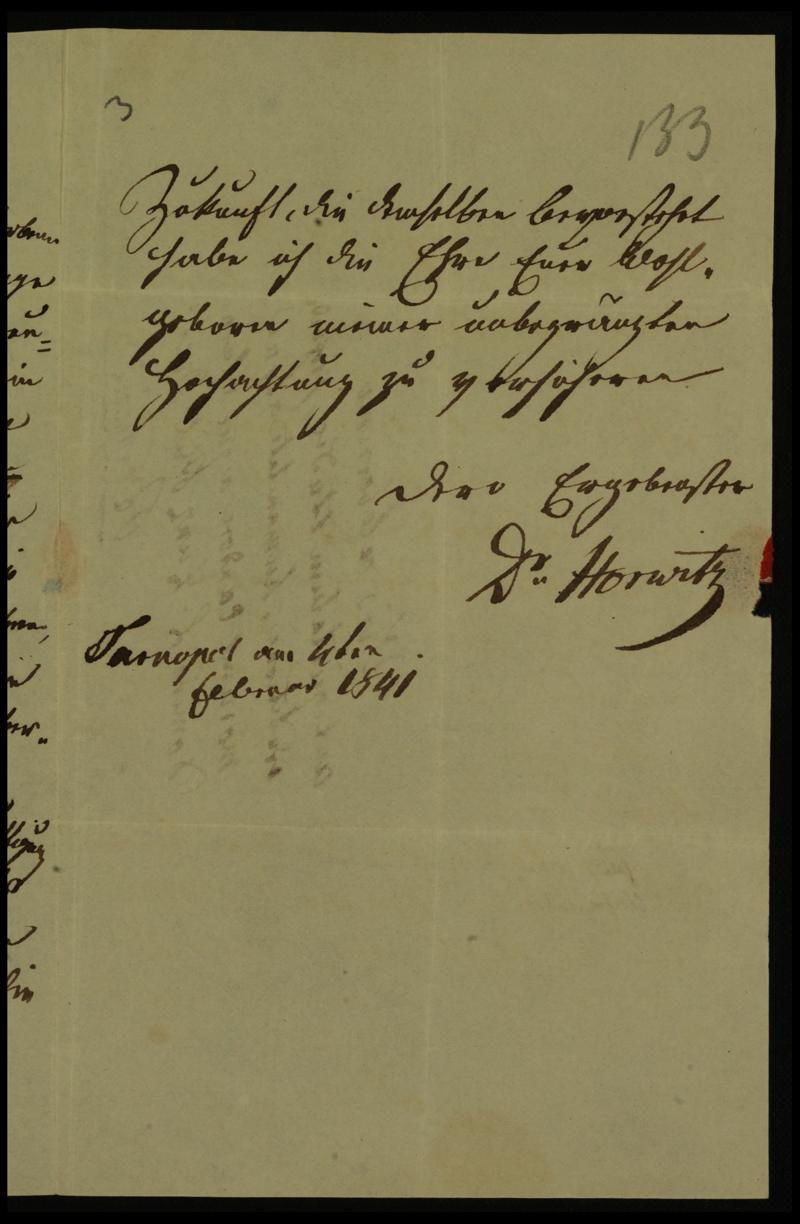 3
133
Zukunft, die demselben bevorsteht
habe ich die Ehre Euer Wohl-
geboren meiner unbegränzten
Hochachtung zu versichern
Dero Ergebenster
Dr. Horwitz
Tarnopol am 4ten
Februar 1841